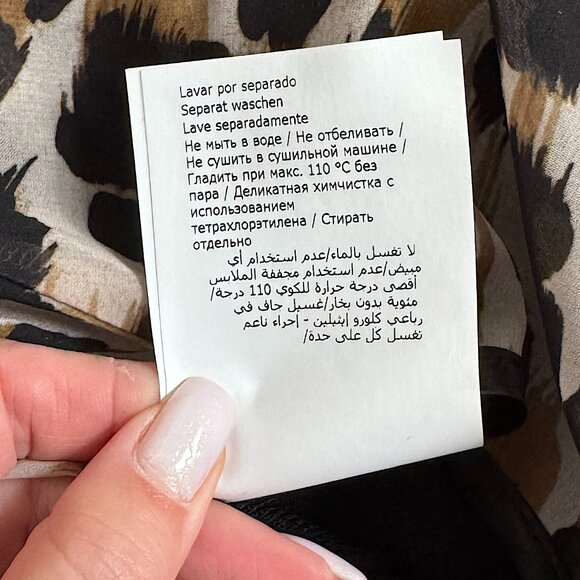 Lavar por separado
Separat waschen
Lave separadamente
Не мыть в воде / Не отбеливать /
Не сушить в сушильной машине /
Гладить при макс. 110 ºC без
пара / Деликатная химчистка с
использованием
тетрахлорэтилена / Стирать
отдельно
لا تغسل بالماء/عدم استخدام أي
مبيض/عدم استخدام مجففة الملابس
/أقصى درجة حرارة للكوي 110 درجة
مئوية بدون بخار/غسيل جاف في
رباعي كلورو إيثيلين - إجراء ناعم
/تغسل كل على حدة